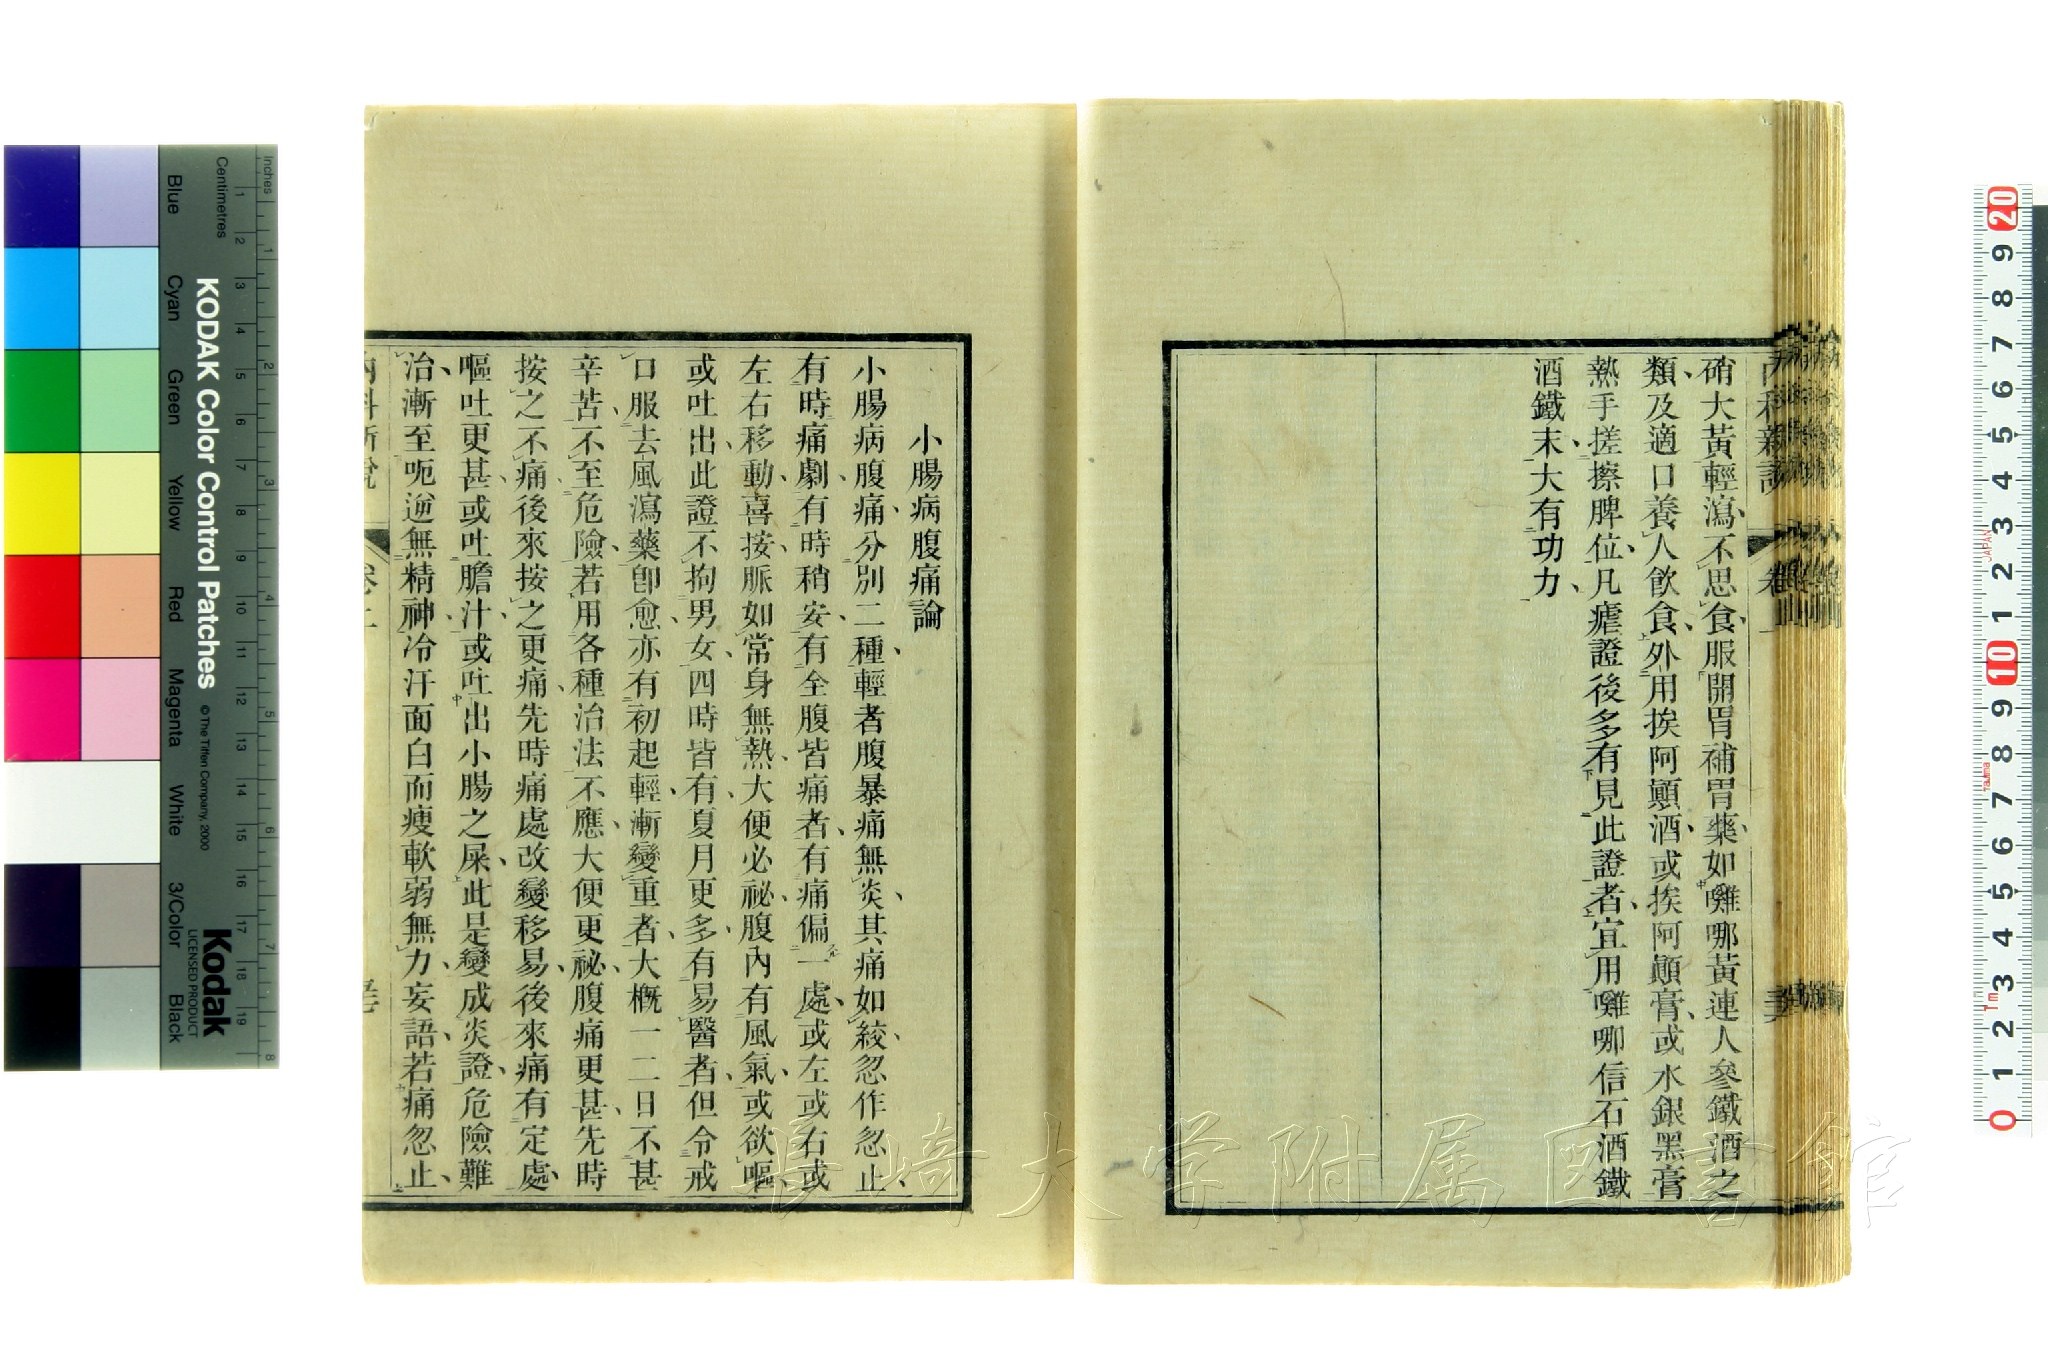 硝大黃輕瀉不思食服開胃補胃藥如囄哪黃連人參鐵酒之
類及適口養人飲食外用挨阿顚酒或挨阿顚膏或水銀黑膏
熱手搓擦脾位凡瘧證後多有見此證者宜用囄哪信石酒鐵
酒鐵末大有功力
小腸病腹痛論
小腸病腹痛分別二種輕者腹暴痛無炎其痛如絞忽作忽止
有時痛劇有時稍安有全腹皆痛者有痛偏一處或左或右或
左右移動喜按脈如常身無熱大便必祕腹內有風氣或欲嘔
或吐出此證不拘男女四時皆有夏月更多有易醫者但令戒
口服去風瀉藥卽愈亦有初起輕漸變重者大概一二日不甚
辛苦不至危險若用各種治法不應大便更祕腹痛更甚先時
按之不痛後來按之更痛先時痛處改變移易後來痛有定處
嘔吐更甚或吐膽汁或吐出小腸之屎此是變成炎證危險難
治漸至呃逆無精神冷汗面白而瘦軟弱無力妄語若痛忽止
內科新說
長崎大学附属図書館
KODAK Color Control Patches
© The Tiffen Company, 2000
Kodak
LICENSED PRODUCT
Inches
Centimetres
Blue
Cyan
Green
Yellow
Red
Magenta
White
3/Color
Black
1 2 3 4 5 6 7 8 9 10 11 12 13 14 15 16 17 18 19
1 2 3 4 5 6 7 8
0 1 2 3 4 5 6 7 8 9 10 1 2 3 4 5 6 7 8 9 20
JAPAN